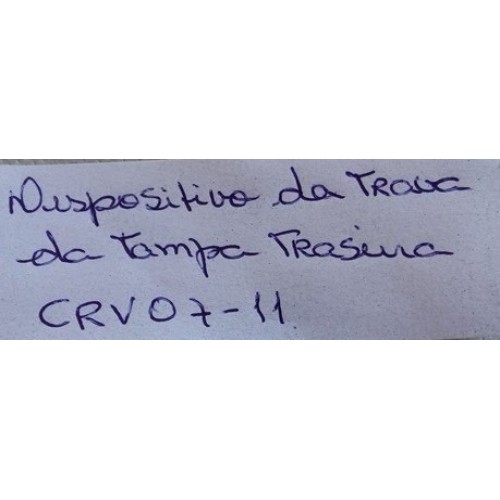 Dispositivo da Trava
da Tampa Traseira
CRV 07-11